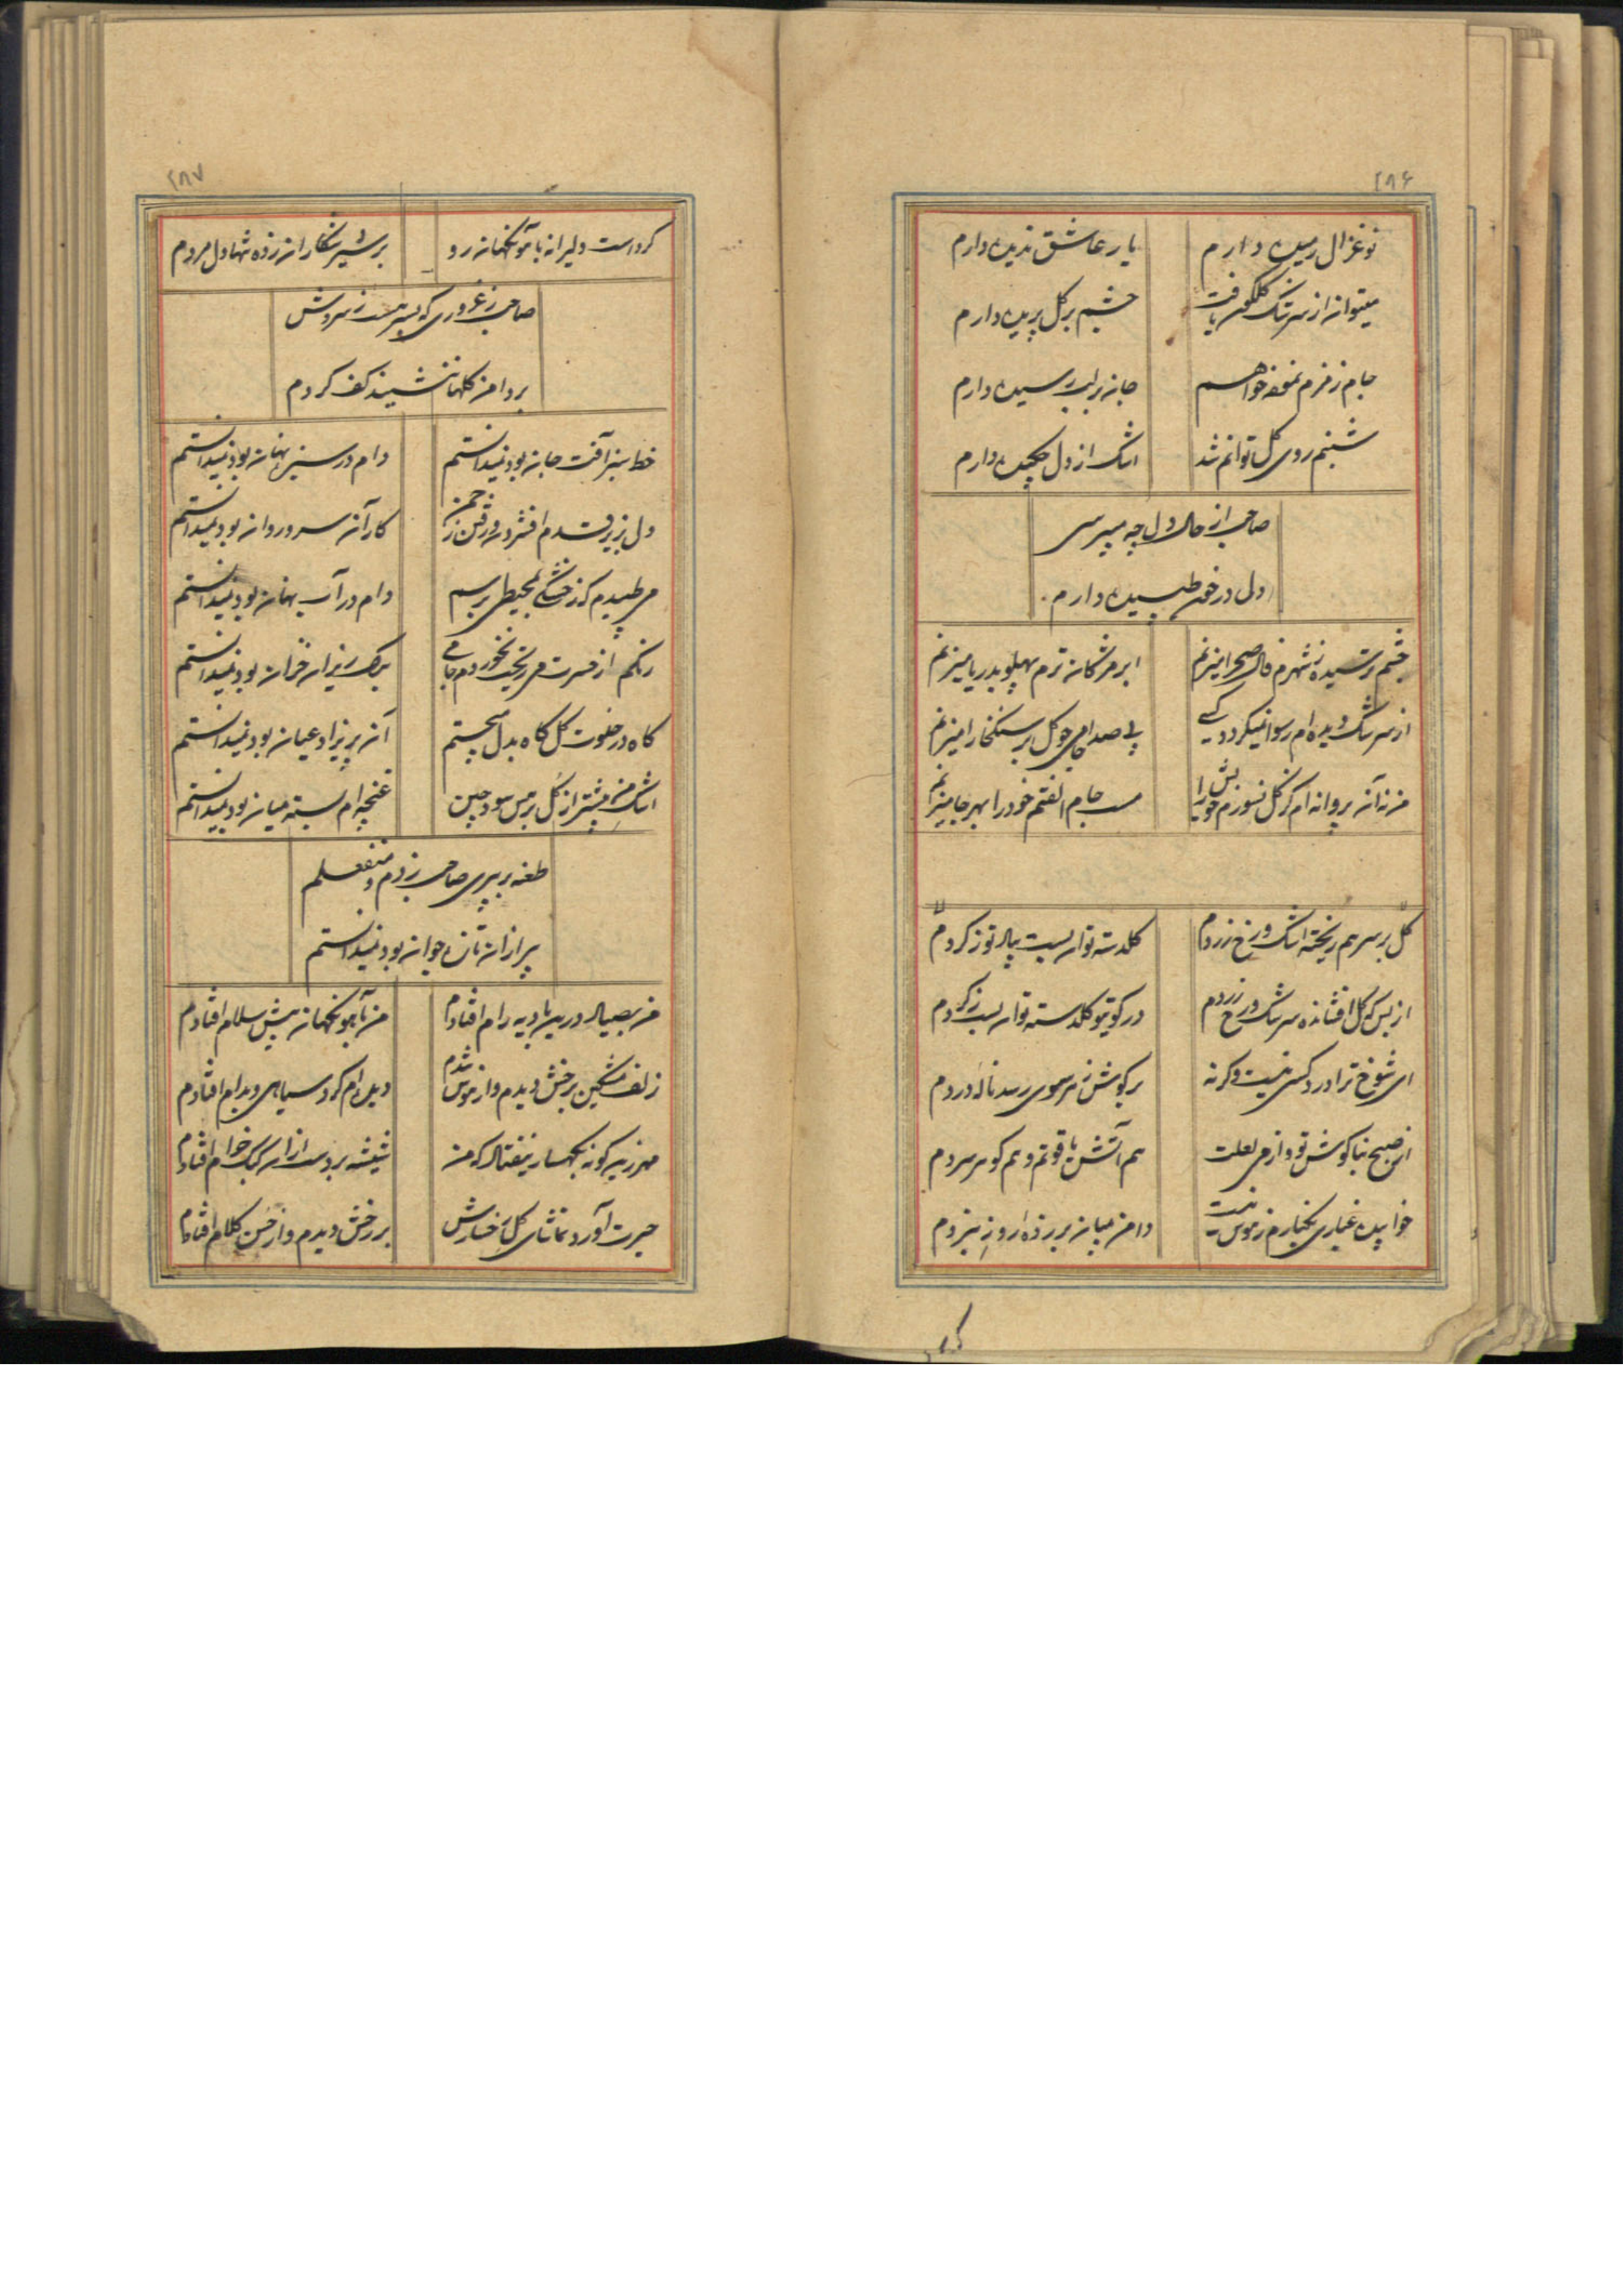 ۲۸۶
نوغزال رمیده دارم یار عاشق ندیده دارم
میتوان از سرشک گلگون یافت چشم بر گل پریده دارم
جام زمزم نمیخواهم جان بر لب رسیده دارم
شبنم روی گل توانم شد اشک از دل چکیده دارم
صاحب از حال دل چه میپرسی
دلی در خون طپیده دارم
چشم ترسیده ز شهرم فال صحرا میزنم ابر مژگان ترم پهلو بدریا میزنم
از سرشک دیده ام رسوا نمیگردد کسی بی صدا می چو گل بر سنگ خارا میزنم
من نه آن پروانه ام کز گل نسوزم خویش را مست جام الفتم خود را بهر جا میزنم
گل بر سر هم ریخته اشک و رخ زردم گلدسته توان بست بیاد تو ز گردم
از بس که گل افشانده سرشک و رخ زردم در کوی تو گلدسته توان بست ز گردم
ای شوخ ترا درد کسی نیست وگرنه بر گوش ز هر موی رسد ناله دردم
از صبح بناگوش تو و از می لعلت هم آتش یاقوتم و هم گوهر سردم
خوابیده غباری بکنارم ز هوس نیست دامن بمیان بر زده از روز نبردم
۲۸۷
کرد است دلیرانه با آهو نگهان رو بر شیر شکاران زده تنها دل مردم
صاحب ز غروری که بسر هست ز سروش
بر دامن گلها ننشیند کف گردم
خط سبز آفت جان بود نمیدانستم دام در سبزه نهان بود نمیدانستم
دل بزیر قدم افشردن و رفتن ز چمن کار آن سرو روان بود نمیدانستم
می طپیدم که ز خشکی بمحیطی برسم دام در آب نهان بود نمیدانستم
رنگم از حسرت می ریخت نخوردم جامی برگ ریزان خزان بود نمیدانستم
گاه در خلوت گل گاه بدل میجستم آن پریزاد عیان بود نمیدانستم
اشک من بیشتر از گل هوس سود چمن غنچه ام بسته میان بود نمیدانستم
طعنه بر پیری صاحب زدم و منفعلم
پیر از آن تازه جوان بود نمیدانستم
من بصیاد درین بادیه رام افتادم من بآهو نگهان پیش سلام افتادم
زلف مشکین برخش دیدم و از هوش شدم دیده ام کرد سیاهی و بدام افتادم
هرزه گونه بکهسار نیفتاد که من شیشه بر دست از آن کبک خرام افتادم
حیرت آورد تماشای گل رخسارش بر رخش دیدم و از حسن کلام افتادم